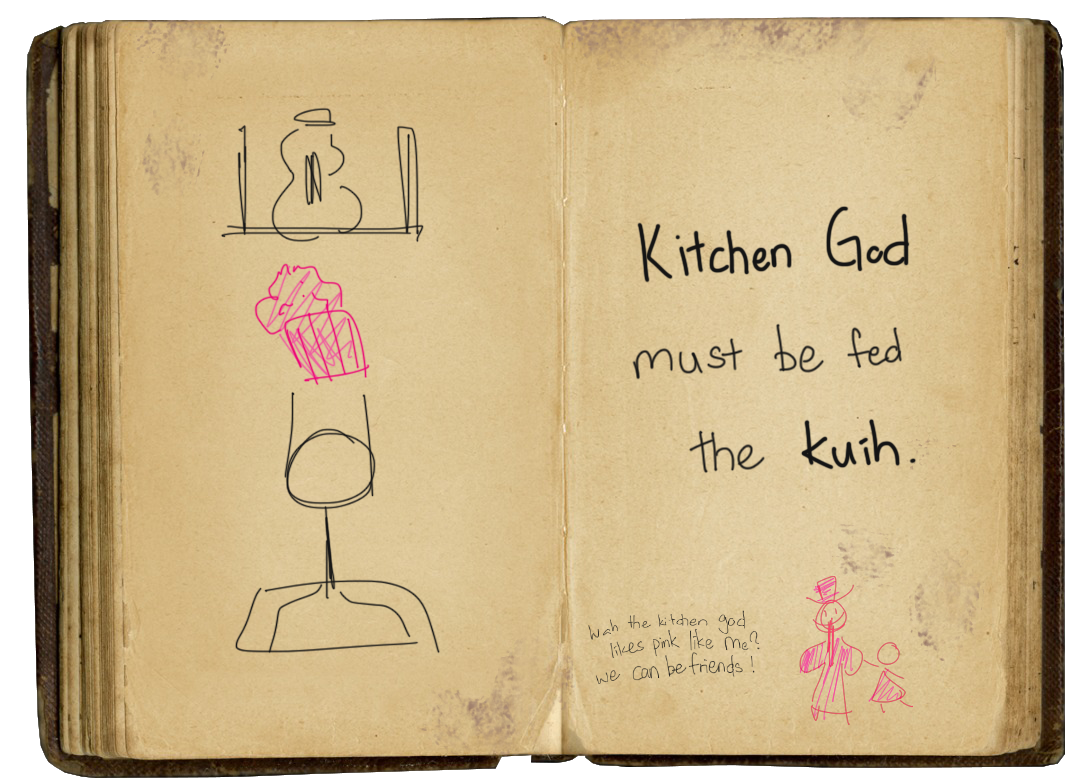 Kitchen God
must be fed
the kuih.
Wah the kitchen god
likes pink like me?
we can be friends!